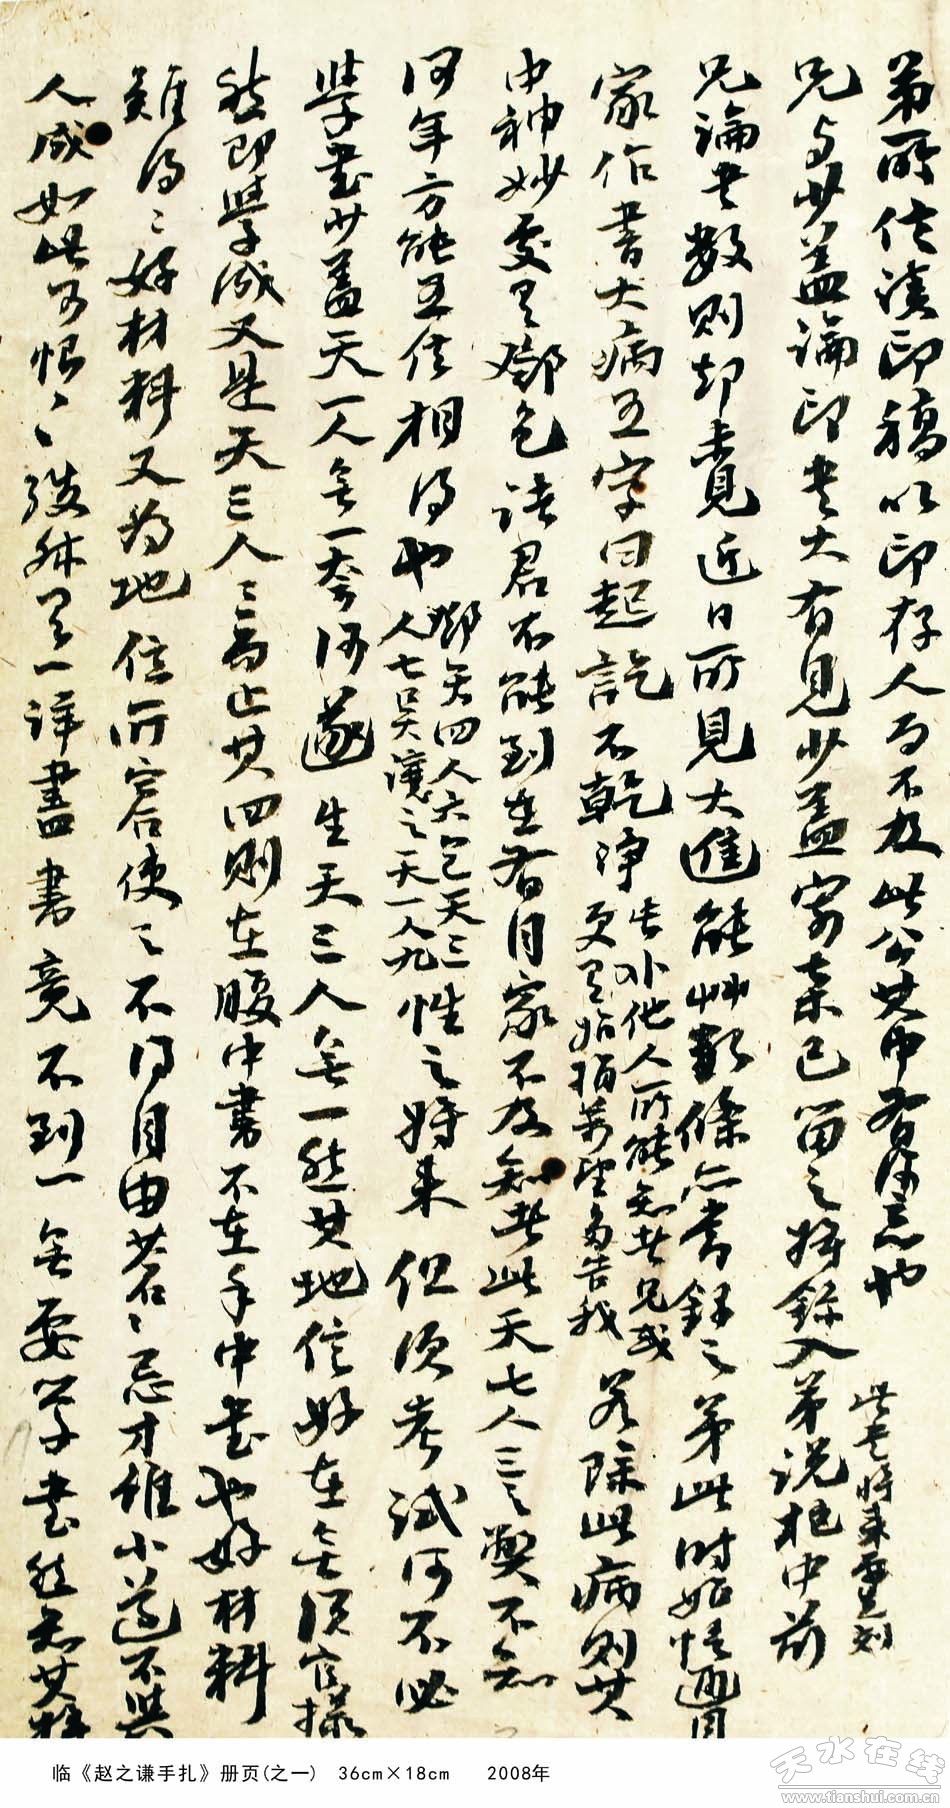 弟所作汉印稿以印存人而不及此公其中有深意也
此書將来要重刻
兄与少盖論印書大有見少盖寄来已留之將錄入弟说杞中前
兄論書數則却未見近日所見大進能草數條亦當録之弟此时始悟通自
家作書大病五字曰起訖不乾淨
此外他人所能知者兄或
更有指摘萬望多告我
若除此病則其
中神妙處有鄧包諸君不能到在者自家不及知者此天七人三之獘不知
何年方能五信相得也
鄧天四人六包天三
人七吴讓之天一人九
性之將来但須考試何不必
學書少蓋天一人無一奈何遂生天三人無一然其地信好在無須官樣
然即學成又是天三人三而止其四則在腹中書不在手中書也好材料
難得〻好材料又為地位所窘使之不得自由若若〻忌才維小道不與
人成如此可恨〻致於有一詳盡書竟不到一無要學書然知其難
临《赵之谦手扎》册页(之一) 36cm×18cm 2008年
天水在线
www.tianshui.com.cn